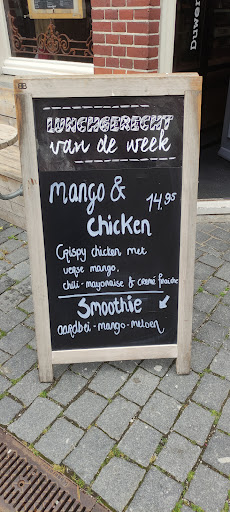 LUNCHGERECHT
van de week
Mango &
Chicken 14.95
Crispy chicken met
verse mango,
chili-mayonaise & creme fraiche
Smoothie ↙
aardbei-mango-meloen